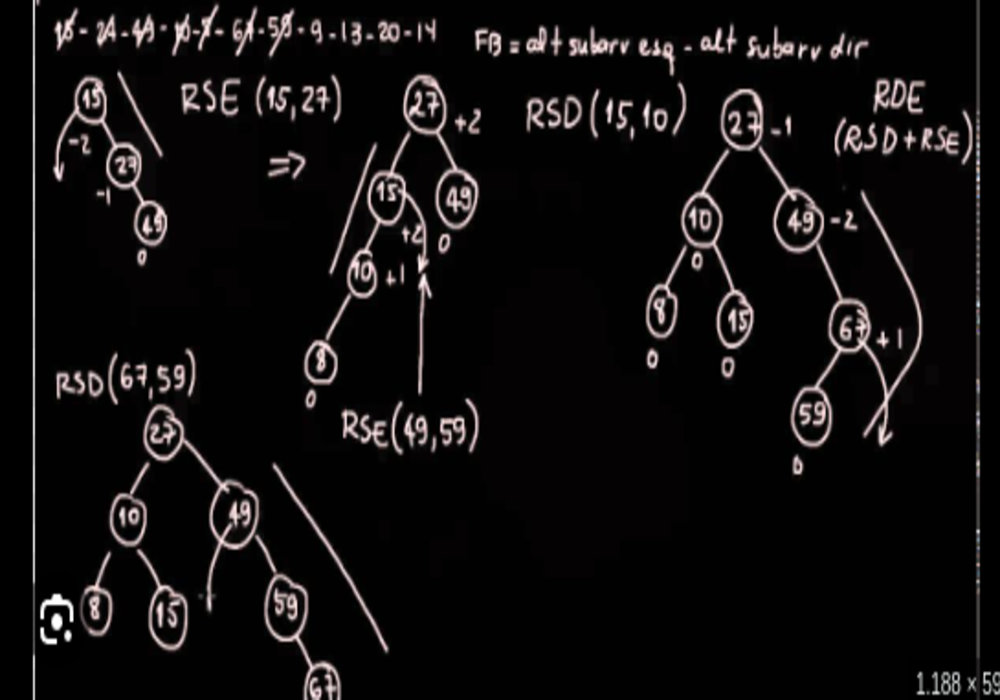 15 - 27 - 49 - 10 - 8 - 67 - 59 - 9 - 13 - 20 - 14
FB = alt subarv esq - alt subarv dir
RSE (15,27)
15
-2
27
-1
49
0
=>
27
+2
15
+2
49
0
10
+1
8
0
RSE(49,59)
RSD(15,10)
27
-1
10
0
49
-2
8
0
15
0
67
+1
59
0
RDE
(RSD+RSE)
RSD(67,59)
27
10
49
8
15
59
67
1.188 × 59